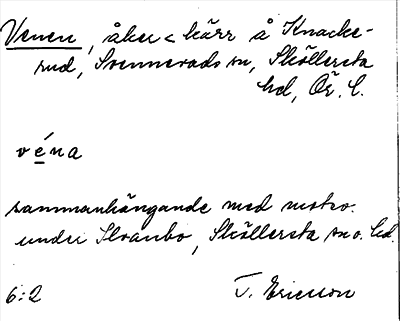 Venen, åker < kärr å Knacke-
rud, Svennevads sn, Sköllersta
hd, Ör. l.
véna
sammanhängande med motsv.
under Skranbo, Sköllersta sn o. hd.
6:2 T. Ericsson